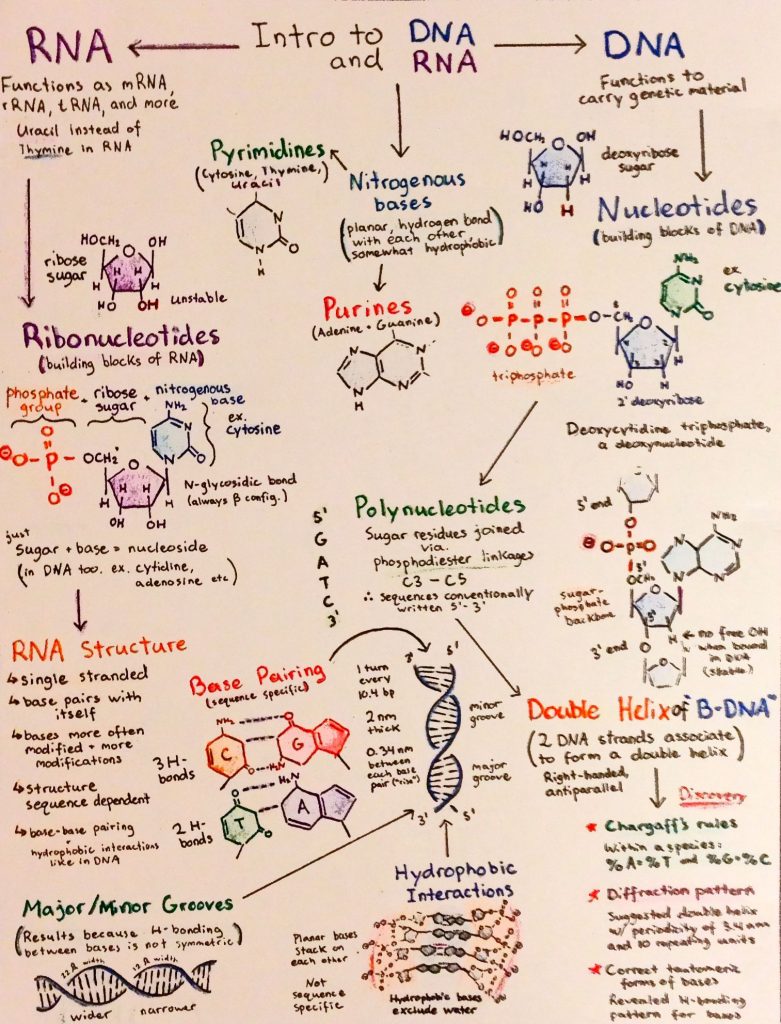 RNA
Intro to DNA
and RNA
DNA
Functions as mRNA,
rRNA, tRNA, and more
Uracil instead of
Thymine in RNA
Functions to
carry genetic material
Pyrimidines
(Cytosine, Thymine,
Uracil)
N
N
O
H
Nitrogenous
bases
(planar, hydrogen bond
with each other
somewhat hydrophobic)
HOCH2
O
OH
H
H
H
HO
H
deoxyribose
sugar
Nucleotides
(building blocks of DNA)
ribose
sugar
HOCH2
O
OH
H
H
H
HO
OH
unstable
Purines
(Adenine + Guanine)
N
N
N
N
H
Ribonucleotides
(building blocks of RNA)
phosphate
group
+ ribose
sugar
+ nitrogenous
base
NH2
N
N
O
ex.
cytosine
O
⊖O-P-
O⊖
OCH2
O
H
H
OH
OH
N-glycosidic bond
(always β config.)
NH2
N
N
O
ex.
cytosine
O O O
⊖O-P-O-P-O-P-O-CH2
O⊖ O⊖ O⊖
triphosphate
O
HO
2' deoxyribose
Deoxycytidine triphosphate,
a deoxynucleotide
just
Sugar + base = nucleoside
(in DNA too. ex. cytidine,
adenosine etc)
5'
G
A
T
C
3'
Polynucleotides
Sugar residues joined
via
phosphodiester linkages
C3 - C5
∴ sequences conventionally
written 5'- 3'
5' end
O
⊖O-P=O
O
5'
OCH2
O
NH2
N
N
N
N
sugar-
phosphate
backbone
3'
H
3' end
O
← no free OH
when bound
in DNA
(stable)
RNA Structure
↳ single stranded
↳ base pairs with
itself
↳ bases more often
modified + more
modifications
↳ structure
sequence dependent
↳ base-base pairing
+
hydrophobic interactions
like in DNA
Base Pairing
(sequence specific)
NH2
O
C
G
O
H2N
3 H-
bonds
O
H2N
T
A
O
2 H-
bonds
1 turn
every
10.4 bp
2 nm
thick
0.34 nm
between
each base
pair ("rise")
3'
5'
minor
groove
major
groove
3'
5'
Double Helix of "B-DNA"
(2 DNA strands associate
to form a double helix)
Right-handed,
antiparallel
Discovery
★ Chargaff's rules
Within a species:
%A=%T and %G=%C
★ Diffraction pattern
Suggested double helix
w/ periodicity of 3.4 nm
and 10 repeating units
★ Correct tautomeric
forms of bases
Revealed H-bonding
pattern for bases
Major/Minor Grooves
(Results because H-bonding
between bases is not symmetric)
22 Å width
12 Å width
wider
narrower
Hydrophobic
Interactions
Planar bases
stack on
each other
Not
sequence
specific
Hydrophobic bases
exclude water